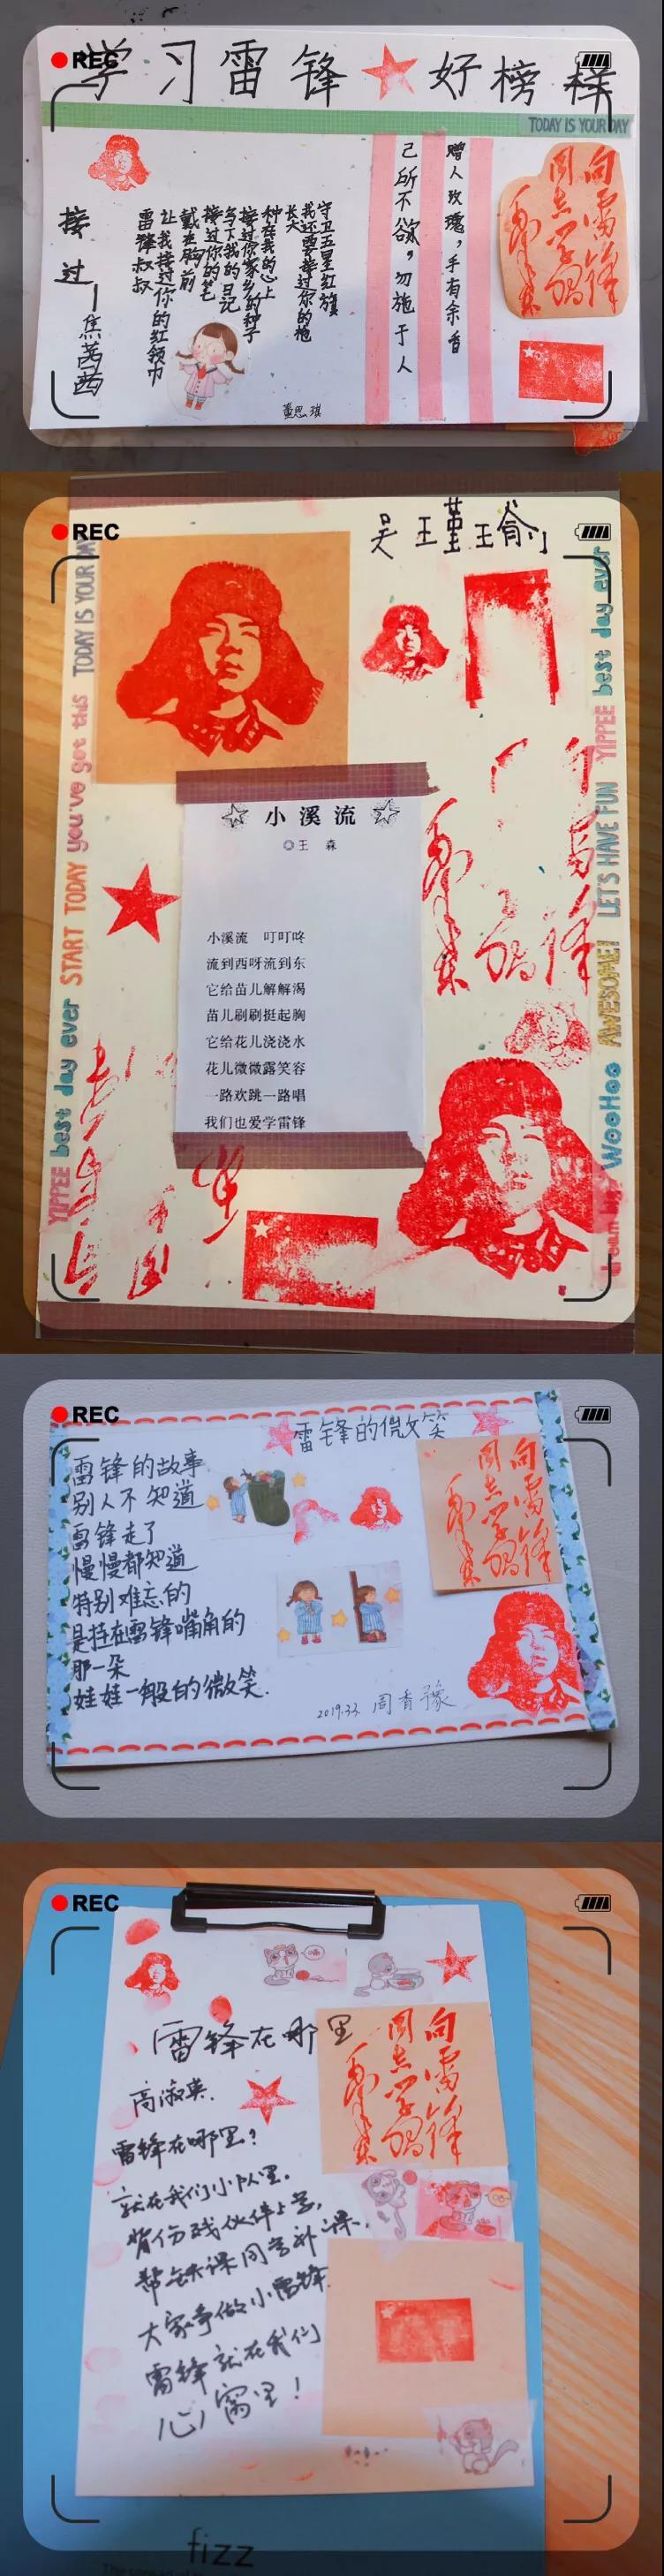 REC
学习雷锋好榜样
TODAY IS YOUR DAY
向雷锋
同志学习
毛泽东
赠人玫瑰，手有余香
己所不欲，勿施于人
守卫五星红旗
我还要接过你的枪
长大
种在我的心上
接过你家乡的种子
写下我的日记
接过你的笔
戴在胸前
让我接过你的红领巾
雷锋叔叔
接过—焦茜茜
董思琪
REC
吴瑾瑜
TODAY IS YOUR DAY
you've got this
START TODAY
best day ever
YIPPEE
小溪流
◎王 森
小溪流 叮叮咚
流到西呀流到东
它给苗儿解解渴
苗儿刷刷挺起胸
它给花儿浇浇水
花儿微微露笑容
一路欢跳一路唱
我们也爱学雷锋
best day ever
YIPPEE
LET'S HAVE FUN
AWESOME!
WOOHOO
REC
雷锋的微笑
雷锋的故事
别人不知道
雷锋走了
慢慢都知道
特别难忘的
是挂在雷锋嘴角的
那一朵
娃娃一般的微笑.
向雷锋
同志学习
毛泽东
2019.3.3. 周香豫
REC
雷锋在哪里
高淑英.
雷锋在哪里?
就在我们小队里.
背伤残伙伴上学,
帮缺课同学补课.
大家争做小雷锋
雷锋就在我们
心窝里!
向雷锋
同志学习
毛泽东
fizz